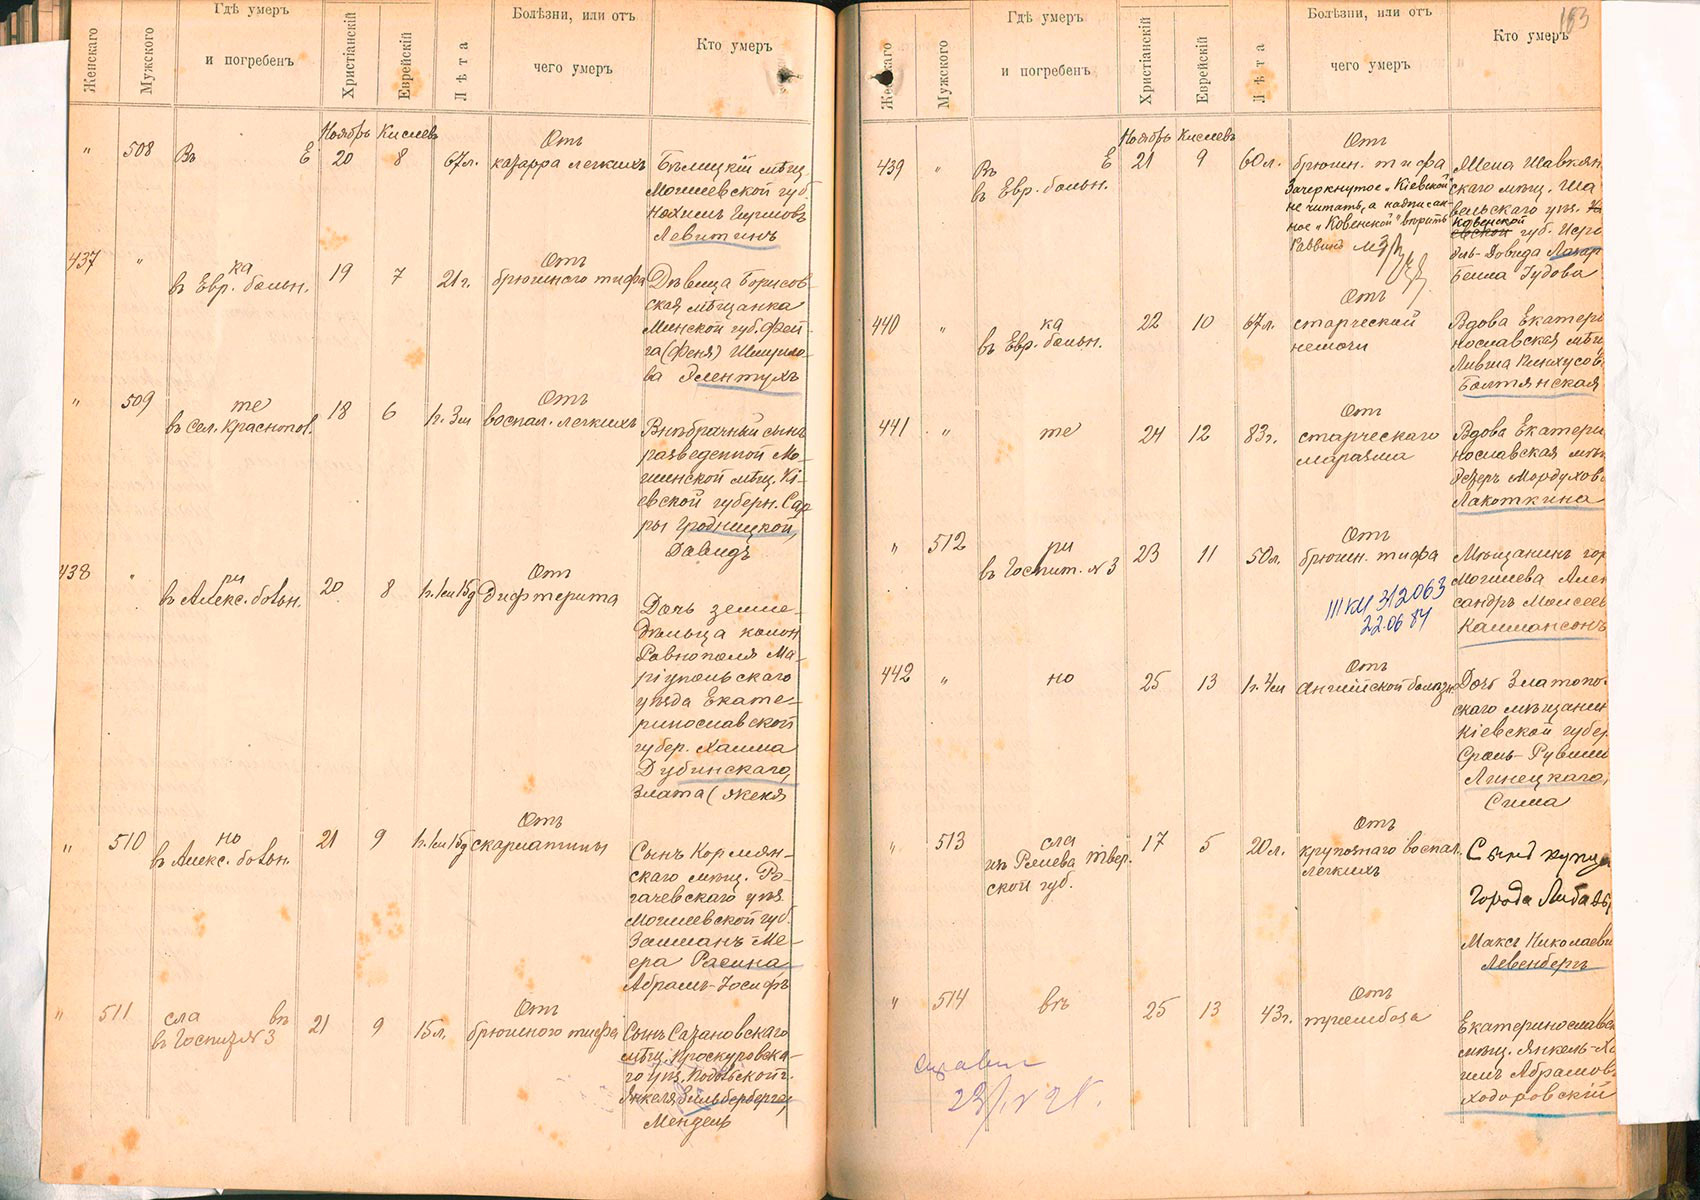 Женскаго
Мужского
Гдѣ умеръ
и погребенъ
Христіанскій
Еврейскій
Лѣта
Болѣзни, или отъ
чего умеръ
Кто умеръ
Ноябрь Кислевъ
" 508 Въ Е 20 8 67л.
Отъ
катарра легкихъ
Бѣлицкій мѣщ.
Могилевской губ.
Нохимъ
Левитинъ
437 "
ка
въ Евр. больн. 19 7 21г.
Отъ
брюшного тифа
Дѣвица Борисов-
ская мѣщанка
Минской губ. Фей-
га (Феня) Шмуило-
ва Элентухъ
" 509
те
въ сел. Краснопол. 18 6 1г. 3м
Отъ
воспал. легкихъ
Внѣбрачный сынъ
разведенной Мо-
шенской мѣщ. Кі-
евской губерн. Сар-
ры Гродницкой,
Давидъ
438 "
ри
въ Алекс. больн. 20 8 1г. 1м 15д
Отъ
Дифтерита
Дочь земле-
дѣльца колон.
Равнополя Ма-
ріупольскаго
уѣзда Екате-
ринославской
губер. Хаима
Дубинскаго,
Злата (Женя
" 510
но
въ Алекс. больн. 21 9 1г. 1м 15д
Отъ
скарлатины
Сынъ Кормян-
скаго мѣщ. Ро-
гачевскаго уѣз.
Могилевской губ.
Залманъ-Ме-
ера Расина,
Абрамъ-Іосифъ
" 511
сла въ
въ Госпит. №3 21 9 15л.
Отъ
брюшного тифа
Сынъ Сатановскаго
мѣщ. Проскуровска-
го уѣз. Подольской г.
Янкеля Зильберберга,
Мендель
183
Женскаго
Мужского
Гдѣ умеръ
и погребенъ
Христіанскій
Еврейскій
Лѣта
Болѣзни, или отъ
чего умеръ
Кто умеръ
Ноябрь Кислевъ
439 " Въ Е 21 9 60л.
въ Евр. больн.
Отъ
брюшн. тифа
Зачеркнутое „Кіевской"
не читать, а надписан-
ное „Ковенской" вѣрить
Раввинъ
Жена Шавлян-
скаго мѣщ. Ша-
вельскаго уѣз.
Ковенской
евской губ. Изра-
иль-Довида Лазар
Бейла Гудова
440 "
ка
въ Евр. больн. 22 10 67л.
Отъ
старческой
немочи
Вдова Екатери
нославская мѣщ
Ливша Пинхусов
Балтянская
441 " те 24 12 83г.
Отъ
старческаго
маразма
Вдова Екатери
нославская мѣщ
Эсѳиръ Мордухов
Лакоткина
" 512
ри
въ Госпит. №3 23 11 50л.
Отъ
брюшн. тифа
III КИ 312063
22.06 84
Мѣщанинъ гор
Могилева Алек
сандръ Моисеев
Калмансонъ
442 " но 25 13 1г. 4м
Отъ
англійской болѣзни
Дочь Златопо-
скаго мѣщанин
Кіевской губер
Сроль-Рувина
Линецкаго,
Сима
" 513
сла
изъ Ржева Твер. 17 5 20л.
ской губ.
Отъ
крупознаго воспал.
легкихъ
Сынъ купца
города Либавы
Максъ Николаеви
Левенбергъ
" 514 въ 25 13 43г.
Отъ
тромбоза
Екатеринославск
мѣщ. Янкель-Ха
имъ Абрамов
Ходоровскій